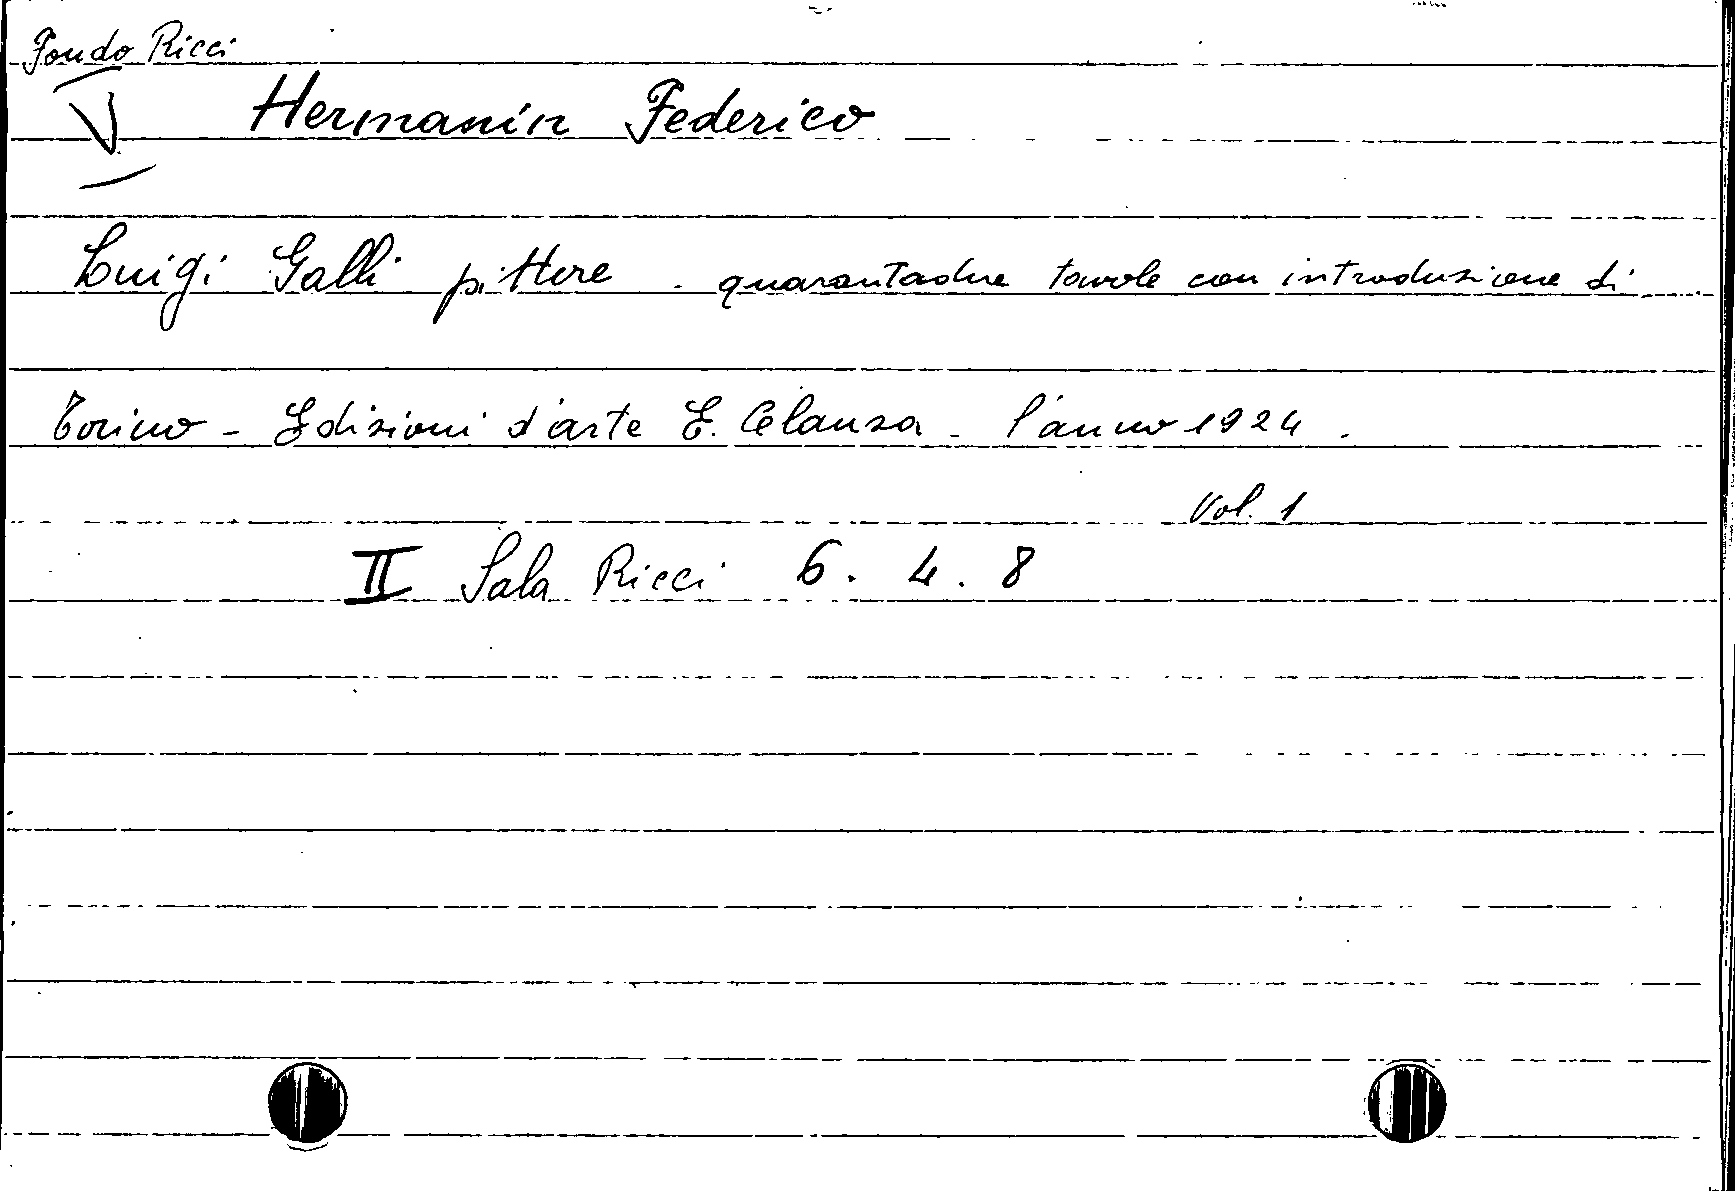 Fondo Ricci
V Hermanin Federico
Luigi Galli pittore . quarantadue tavole con introduzione di
Torino - Edizioni d'arte E. Celanza - l'anno 1924 .
Vol. 1
II Sala Ricci 6. 4. 8